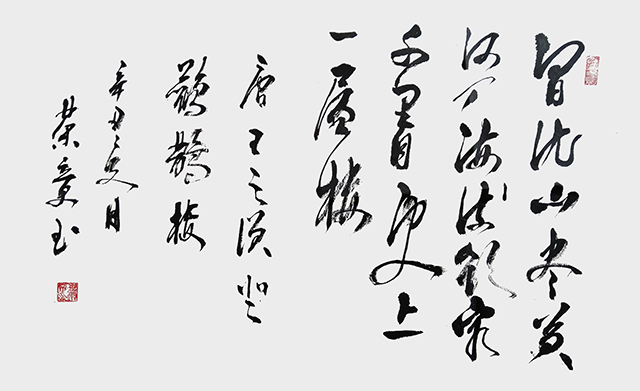 白日依山尽黄
河入海流欲穷
千里目更上
一層楼
唐王之涣登
鸛鵲楼
辛丑夏月
荣章书